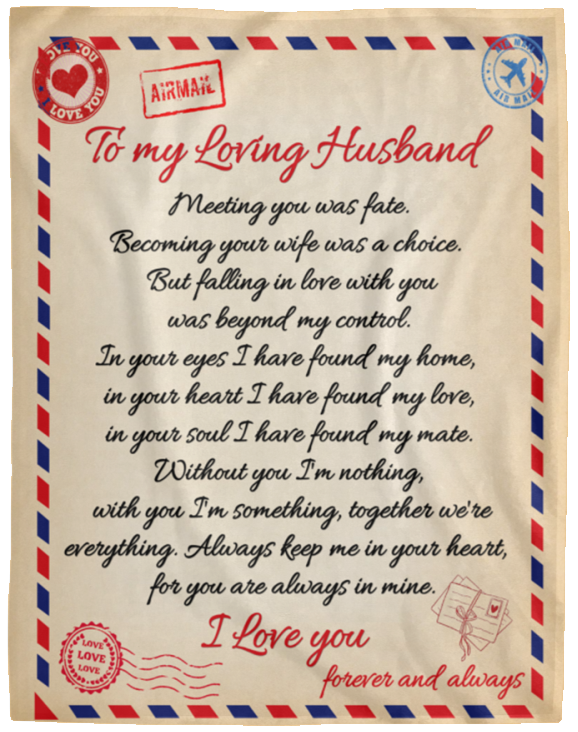 LOVE YOU
I LOVE YOU
AIRMAIL
AIR MAIL
AIR MAIL
To my Loving Husband
Meeting you was fate.
Becoming your wife was a choice.
But falling in love with you
was beyond my control.
In your eyes I have found my home,
in your heart I have found my love,
in your soul I have found my mate.
Without you I'm nothing,
with you I'm something, together we're
everything. Always keep me in your heart,
for you are always in mine.
I Love you
forever and always
LOVE
LOVE
LOVE